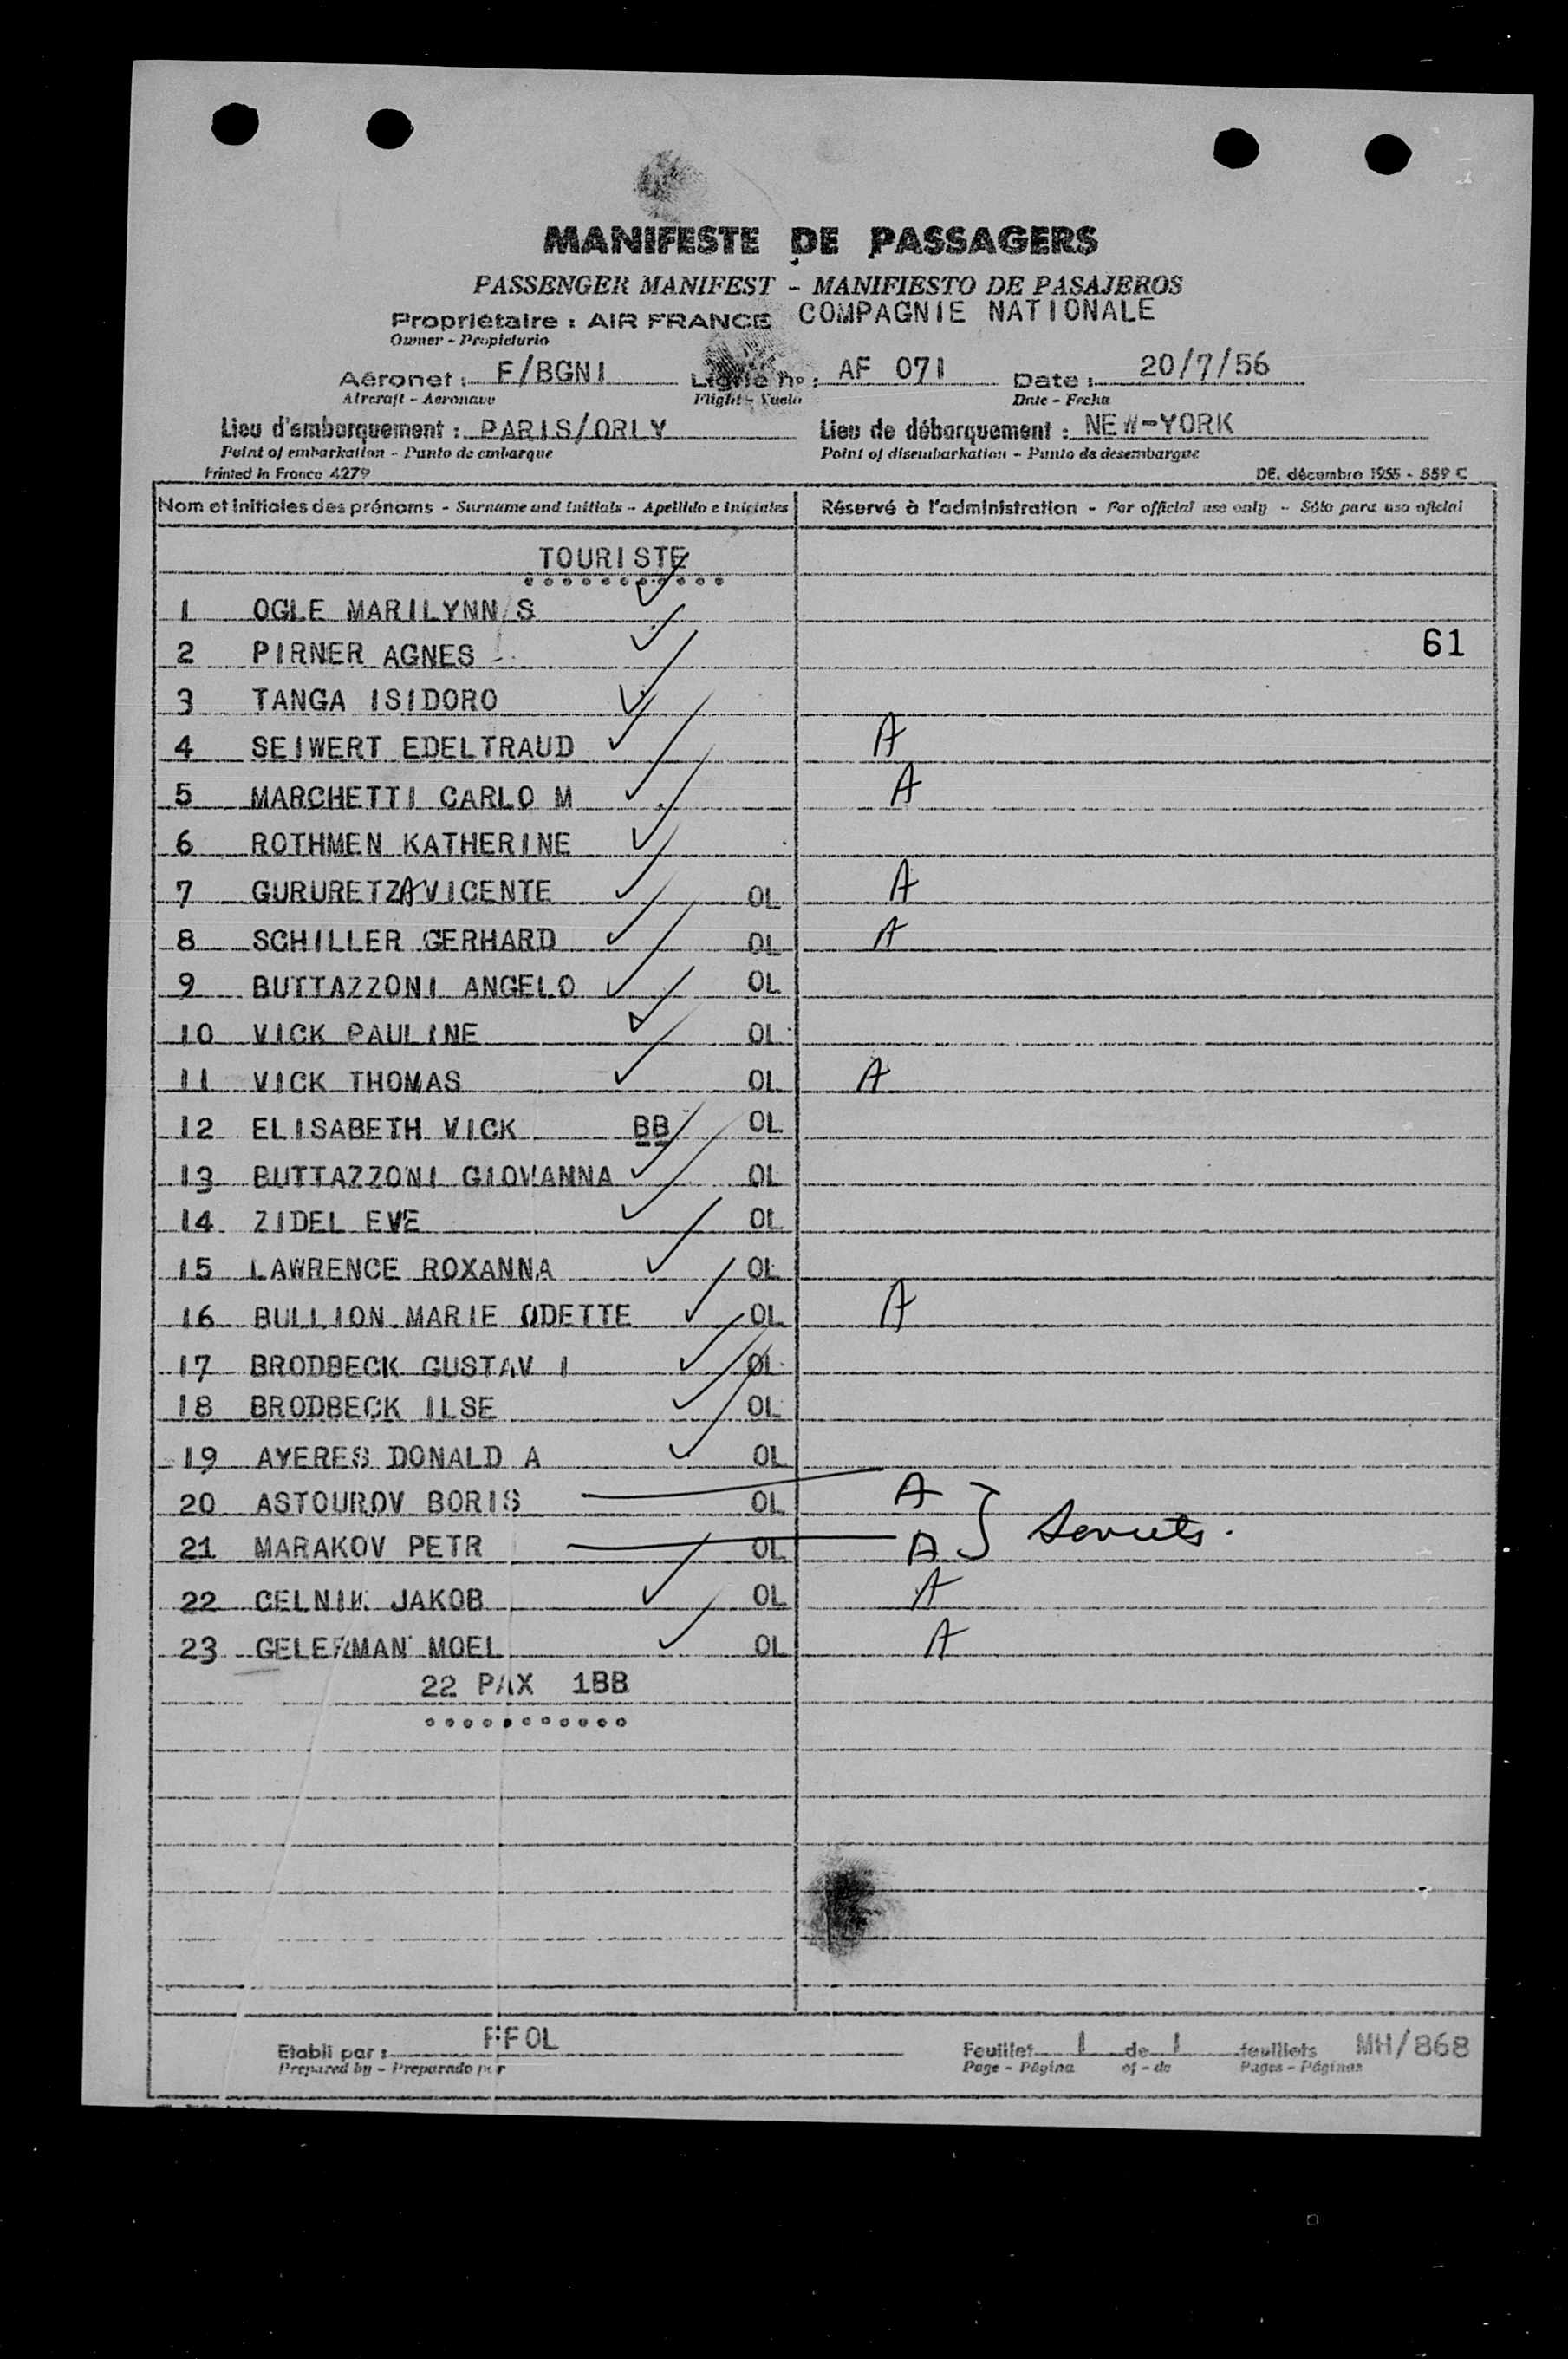 MANIFESTE DE PASSAGERS
PASSENGER MANIFEST - MANIFIESTO DE PASAJEROS
Propriétaire : AIR FRANCE COMPAGNIE NATIONALE
Owner - Propietario
Aéronef : F/BGNI Ligne no : AF 071 Date : 20/7/56
Aircraft - Aeronave Flight - Vuelo Date - Fecha
Lieu d'embarquement : PARIS/ORLY Lieu de débarquement : NEW-YORK
Point of embarkation - Punto de embarque Point of disembarkation - Punto de desembarque
Printed in France 4279 DE. décembre 1955 - 559 C
Nom et initiales des prénoms - Surname and initials - Apellido e iniciales Réservé à l'administration - For official use only - Sólo para uso oficial
TOURISTE
1 OGLE MARILYNN S
2 PIRNER AGNES 61
3 TANGA ISIDORO
4 SEIWERT EDELTRAUD A
5 MARCHETTI CARLO M A
6 ROTHMEN KATHERINE
7 GURURETZA VICENTE OL A
8 SCHILLER GERHARD OL A
9 BUTTAZZONI ANGELO OL
10 VICK PAULINE OL
11 VICK THOMAS OL A
12 ELISABETH VICK BB OL
13 BUTTAZZONI GIOVANNA OL
14 ZIDEL EVE OL
15 LAWRENCE ROXANNA OL
16 BULLION MARIE ODETTE OL A
17 BRODBECK GUSTAV I OL
18 BRODBECK ILSE OL
19 AYERES DONALD A OL
20 ASTOUROV BORIS OL A
21 MARAKOV PETR OL A } Soviets.
22 CELNIK JAKOB OL A
23 GELERMAN MOEL OL A
22 PAX 1BB
Etabli par : FFOL Feuillet 1 de 1 feuillets MH/868
Prepared by - Preparado por Page - Página of - de Pages - Páginas